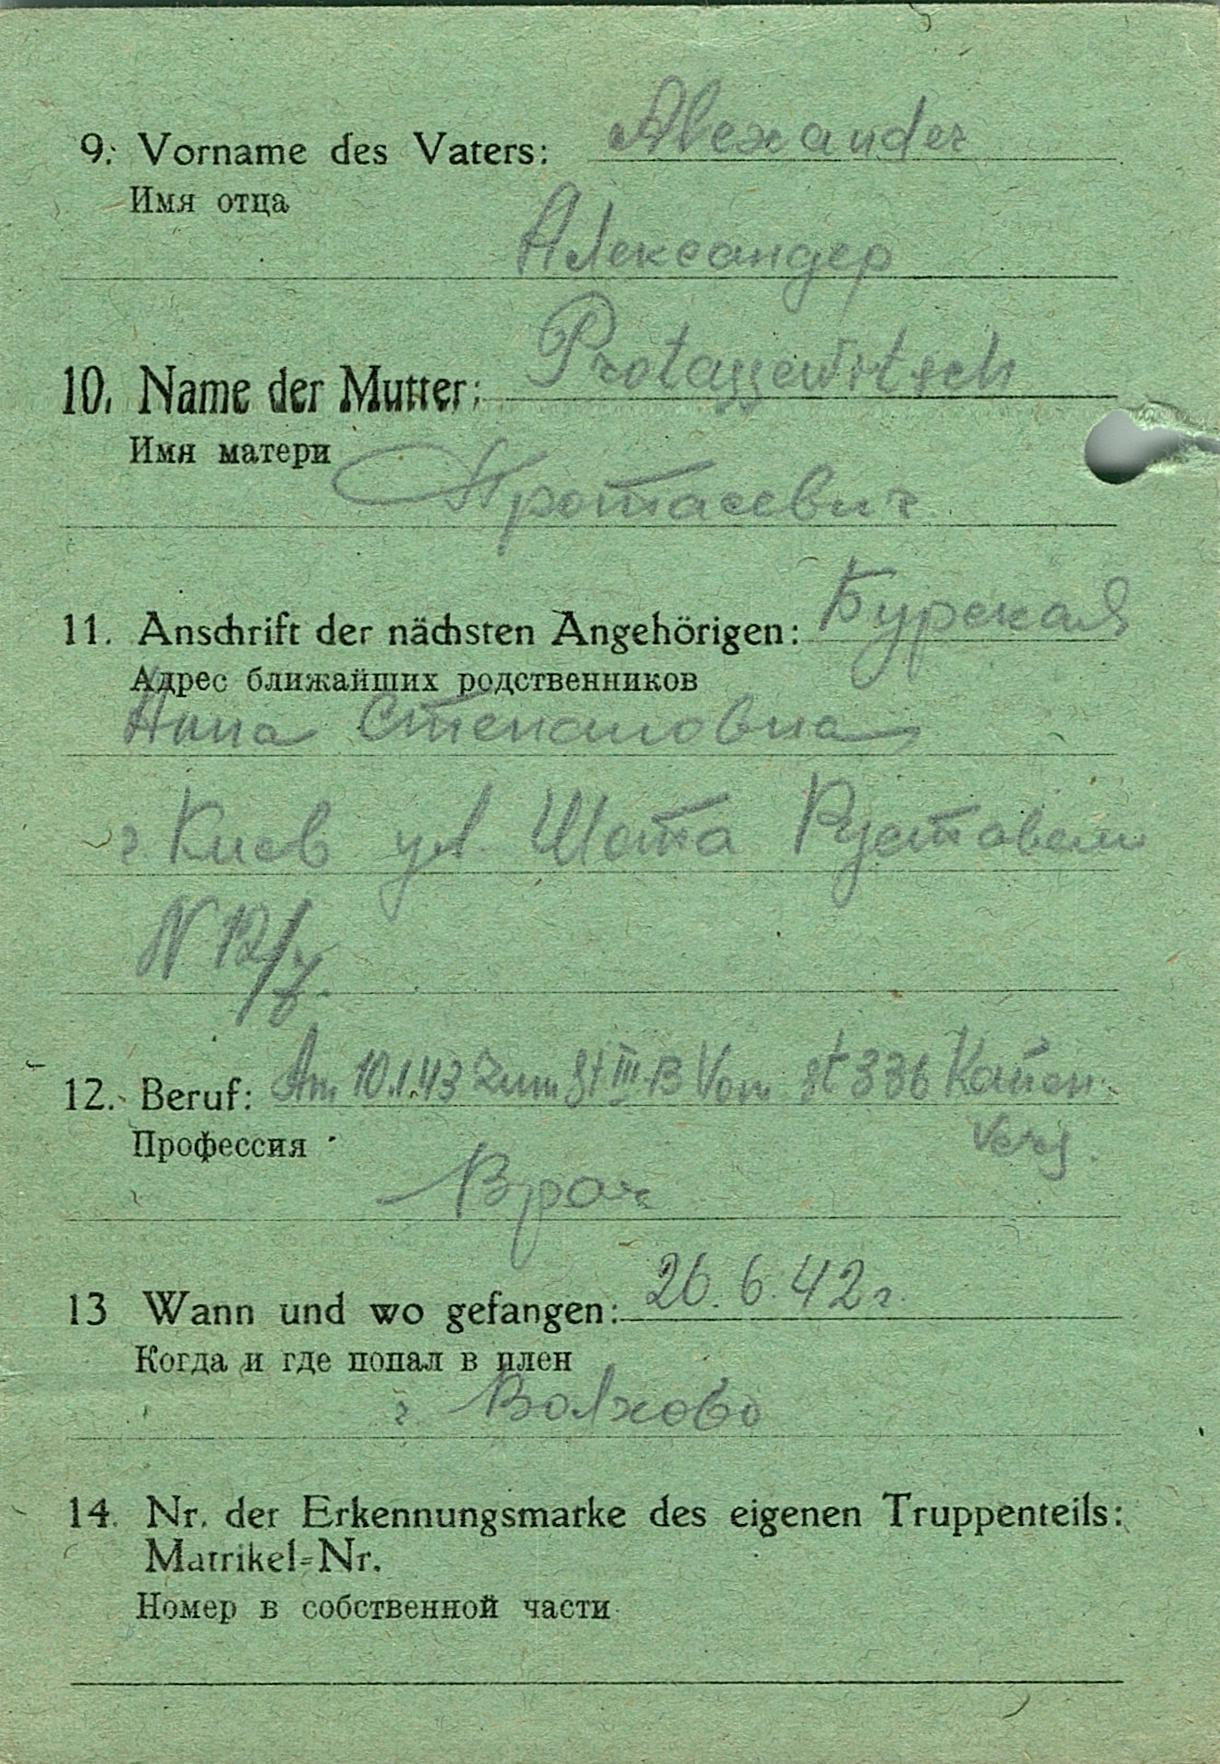 9. Vorname des Vaters: Alexander
Имя отца
Александер
10. Name der Mutter: Protassewitsch
Имя матери
Протасевич
11. Anschrift der nächsten Angehörigen: Бурская
Адрес ближайших родственников
Анна Степановна
г. Киев ул. Шота Руставели
N 12/7.
12. Beruf: Am 10.1.43 zum St III B Vom St 336 Kauen
Vers.
Профессия
Врач
13 Wann und wo gefangen: 26.6.42г.
Когда и где попал в плен
г. Волхово
14. Nr. der Erkennungsmarke des eigenen Truppenteils:
Matrikel-Nr.
Номер в собственной части